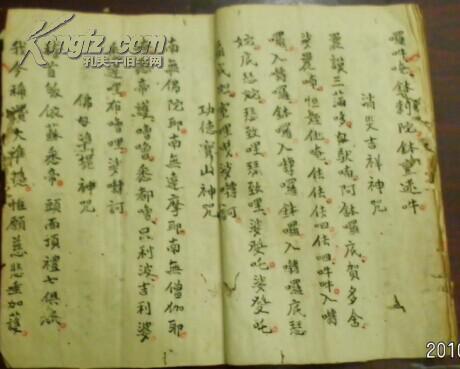 囉吽唵鉢剌陀鉢亶遮吽
消災吉祥神咒
曩謨三滿哆母馱喃阿鉢囉底賀多舍
娑曩喃怛姪他唵佉佉佉呬佉呬吽吽入嚩
囉入嚩囉鉢囉入嚩囉鉢囉入嚩囉底瑟
姹底瑟姹致哩瑟致哩娑癹吒娑癹吒
扇底迦室哩曳娑嚩訶
功德寶山神咒
南無佛陀耶南無達摩耶南無僧伽耶
唵帝護嚕嚕悉都嚕只利波吉利婆
悉達哩布嚕哩娑嚩訶
佛母準提神咒
稽首皈依蘇悉帝頭面頂禮七俱胝
我今稱讚大準提惟願慈悲垂加護
Kongfz.com
孔夫子旧书网
2010